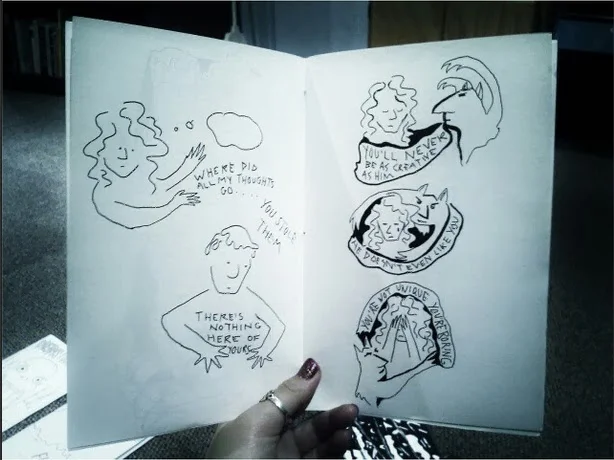 WHERE DID
ALL MY THOUGHTS
GO....
YOU STOLE
THEM
THERE'S
NOTHING
HERE OF
YOURS
YOU'LL NEVER
BE AS CREATIVE
AS HIM
HE DOESN'T EVEN LIKE YOU
YOU'RE NOT UNIQUE YOU'RE BORING